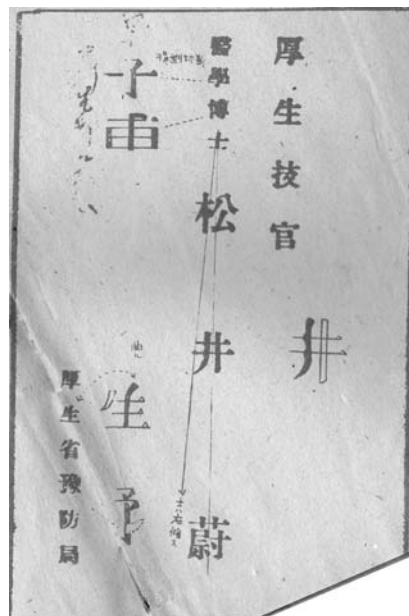 厚生技官
井
醫學博士 松井蔚
子
生
予
厚生省豫防局